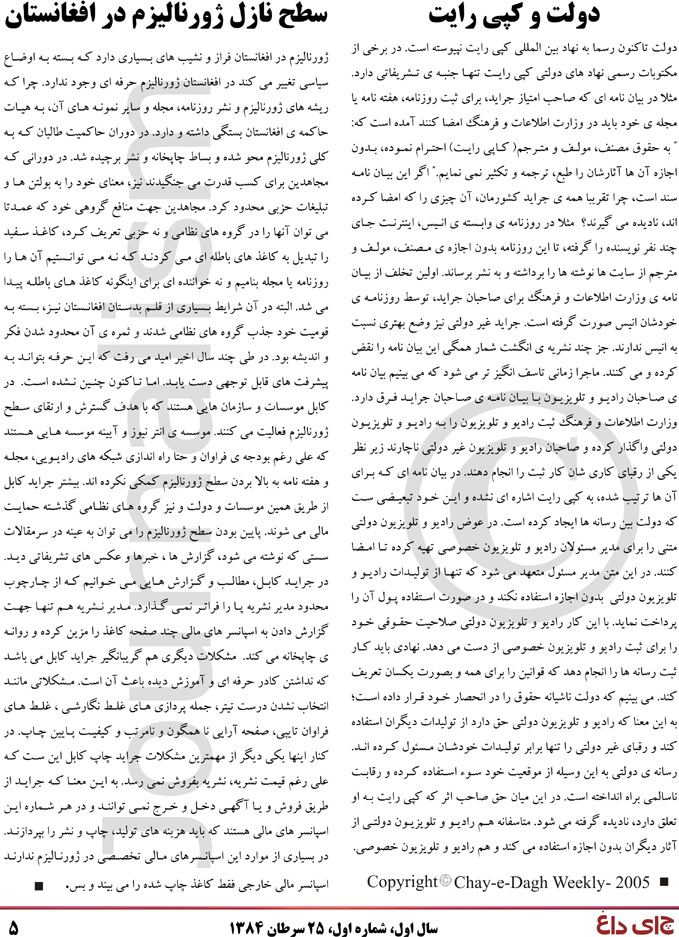 دولت و کپی رایت
دولت تاکنون رسما به نهاد بین المللی کپی رایت نپیوسته است. در برخی از
مکتوبات رسمی نهاد های دولتی کپی رایت تنها جنبه ی تشریفاتی دارد.
مثلا در بیان نامه ای که صاحب امتیاز جراید، برای ثبت روزنامه، هفته نامه یا
مجله ی خود باید در وزارت اطلاعات و فرهنگ امضا کنند آمده است که:
" به حقوق مصنف، مولف و مترجم( کـاپی رایت) احترام نموده، بـدون
اجازه آن ها آثارشان را طبع، ترجمه و تکثیر نمی نمایم." اگر این بیان نامه
سند است، چرا تقریبا همه ی جراید کشورمان، آن چیزی را که امضا کرده
اند، نادیده می گیرند؟ مثلا در روزنامه ی وابسته ی انیس، اینترنت جـای
چند نفر نویسنده را گرفته، تا این روزنامه بدون اجازه ی مـصنف، مولف و
مترجم از سایت ها نوشته ها را برداشته و به نشر برساند. اولین تخلف از بیان
نامه ی وزارت اطلاعات و فرهنگ برای صاحبان جراید، توسط روزنامـه ی
خودشان انیس صورت گرفته است. جراید غیر دولتی نیز وضع بهتری نسبت
به انیس ندارند. جز چند نشریه ی انگشت شمار همگی این بیان نامه را نقض
کرده و می کنند. ماجرا زمانی تاسف انگیز تر می شود که می بینیم بیان نامه
ی صـاحبان رادیـو و تلویزیـون بـا بیان نامـه ی صـاحبان جرایـد فـرق دارد.
وزارت اطلاعات و فرهنگ ثبت رادیو و تلویزیون را به رادیـو و تلویزیـون
دولتی واگذار کرده و صاحبان رادیو و تلویزیون غیر دولتی ناچارند زیر نظر
یکی از رقبای کاری شان کار ثبت را انجام دهند. در بیان نامه ای کـه بـرای
آن ها ترتیب شده، به کپی رایت اشاره ای نشده و ایـن خـود تبعیـضی سـت
که دولت بین رسانه ها ایجاد کرده است. در عوض رادیو و تلویزیون دولتی
متنی را برای مدیر مسئولان رادیو و تلویزیون خصوصی تهیه کرده تـا امـضا
کنند. در این متن مدیر مسئول متعهد می شود که تنهـا از تولیـدات رادیـو و
تلویزیون دولتی بدون اجازه استفاده نکند و در صورت استـفاده پـول آن را
پرداخت نماید. با این کار رادیو و تلویزیون دولتی صلاحیت حقـوقی خـود
را برای ثبت رادیو و تلویزیون خصوصی از دست می دهد. نهادی باید کـار
ثبت رسانه ها را انجام دهد که قوانین را برای همه و بصورت یکسان تعریف
کند. می بینیم که دولت ناشیانه حقوق را در انحصار خـود قـرار داده است؛
به این معنا که رادیو و تلویزیون دولتی حق دارد از تولیدات دیگران استفاده
کند و رقبای غیر دولتی را تنها برابر تولیـدات خودشـان مـسئول کـرده انـد.
رسانه ی دولتی به این وسیله از موقعیت خود سـوء اسـتفاده کـرده و رقابـت
ناسالمی براه انداخته است. در این میان حق صاحب اثر که کپی رایت بـه او
تعلق دارد، نادیده گرفته می شود. متاسفانه هـم رادیـو و تلویزیـون دولتـی از
آثار دیگران بدون اجازه استفاده می کند و هم رادیو و تلویزیون خصوصی.
■ Copyright© Chay-e-Dagh Weekly- 2005
سطح نازل ژورنالیزم در افغانستان
ژورنالیزم در افغانستان فراز و نشیب های بسیاری دارد کـه بسته به اوضـاع
سیاسی تغییر می کند در افغانستان ژورنالیزم حرفه ای وجود ندارد. چرا کـه
ریشه های ژورنالیزم و نشر روزنامه، مجله و سایر نمونـه هـای آن، بـه هیـات
حاکمه ی افغانستان بستگی داشته و دارد. در دوران حاکمیت طالبان کـه بـه
کلی ژورنالیزم محو شده و بساط چاپخانه و نشر برچیده شد. در دورانی کـه
مجاهدین برای کسب قدرت می جنگیدند نیز، معنای خود را به بولتن هـا و
تبلیغات حزبی محدود کرد. مجاهدین جهت منافع گروهی خود که عمـدتا
می توان آنها را در گروه های نظامی و نه حزبی تعریف کـرد، کاغـذ سـفید
را تبدیل به کاغذ های باطله ای می کردنـد کـه نـه مـی توانستیم آن هـا را
روزنامه یا مجله بنامیم و نه خواننده ای برای اینگونه کاغذ هـای باطلـه پیـدا
می شد. البته در آن شرایط بسیاری از قلـم بدسـتان افغانستان نیـز، بسته به
قومیت خود جذب گروه های نظامی شدند و ثمره ی آن محدود شدن فکر
و اندیشه بود. در طی چند سال اخیر امید می رفت که ایـن حرفـه بتوانـد بـه
پیشرفت های قابل توجهی دست یابـد. امـا تـاکنون چنـین نـشده اسـت. در
کابل موسسات و سازمان هایی هستند که با هدف گسترش و ارتقای سـطح
ژورنالیزم فعالیت می کنند. موسسه ی انتر نیوز و آیینه موسسه هایی هستند
که علی رغم بودجه ی فراوان و حتا راه اندازی شبکه های رادیـویی، مجلـه
و هفته نامه به بالا بردن سطح ژورنالیزم کمکی نکرده اند. بیشتر جراید کابل
از طریق همین موسسات و دولت و نیز گروه هـای نظـامی گذشـته حمایـت
مالی می شوند. پایین بودن سطح ژورنالیزم را می توان به عینه در سرمقالات
سستی که نوشته می شود، گزارش ها ، خبرها و عکس های تشریفاتی دیـد.
در جرایـد کابـل، مطالـب و گـزارش هـایی مـی خـوانیم کـه از چـارچوب
محدود مدیر نشریه پـا را فراتـر نمـی گـذارد. مـدیر نـشریه هـم تنهـا جهـت
گزارش دادن به اسپانسر های مالی چند صفحه کاغذ را مزین کرده و روانـه
ی چاپخانه می کند. مشکلات دیگری هم گریبانگیر جراید کابل می باشد
که نداشتن کادر حرفه ای و آموزش دیده باعث آن است. مـشکلاتی ماننـد
انتخاب نشدن درست تیتر، جمله پردازی های غلـط نگارشـی ، غلـط هـای
فراوان تایپی، صفحه آرایی نا همگون و نامرتب و کیفیـت پـایین چـاپ. در
کنار اینها یکی دیگر از مهمترین مشکلات جراید چاپ کابل این سـت کـه
علی رغم قیمت نشریه، نشریه بفروش نمی رسد. به ایـن معنـا کـه جرایـد از
طریق فروش و یـا آگهـی دخـل و خـرج نمـی تواننـد و در هـر شـماره ایـن
اسپانسر های مالی هستند که باید هزینه های تولید، چاپ و نشر را بپردازنـد.
در بسیاری از موارد این اسپانسرهای مالی تخصـصی در ژورنـالیزم ندارنـد
اسپانسر مالی خارجی فقط کاغذ چاپ شده را می بیند و بس. ■
Journalism
©
چای داغ
سال اول، شماره اول، ۲۵ سرطان ۱۳۸۴
۵